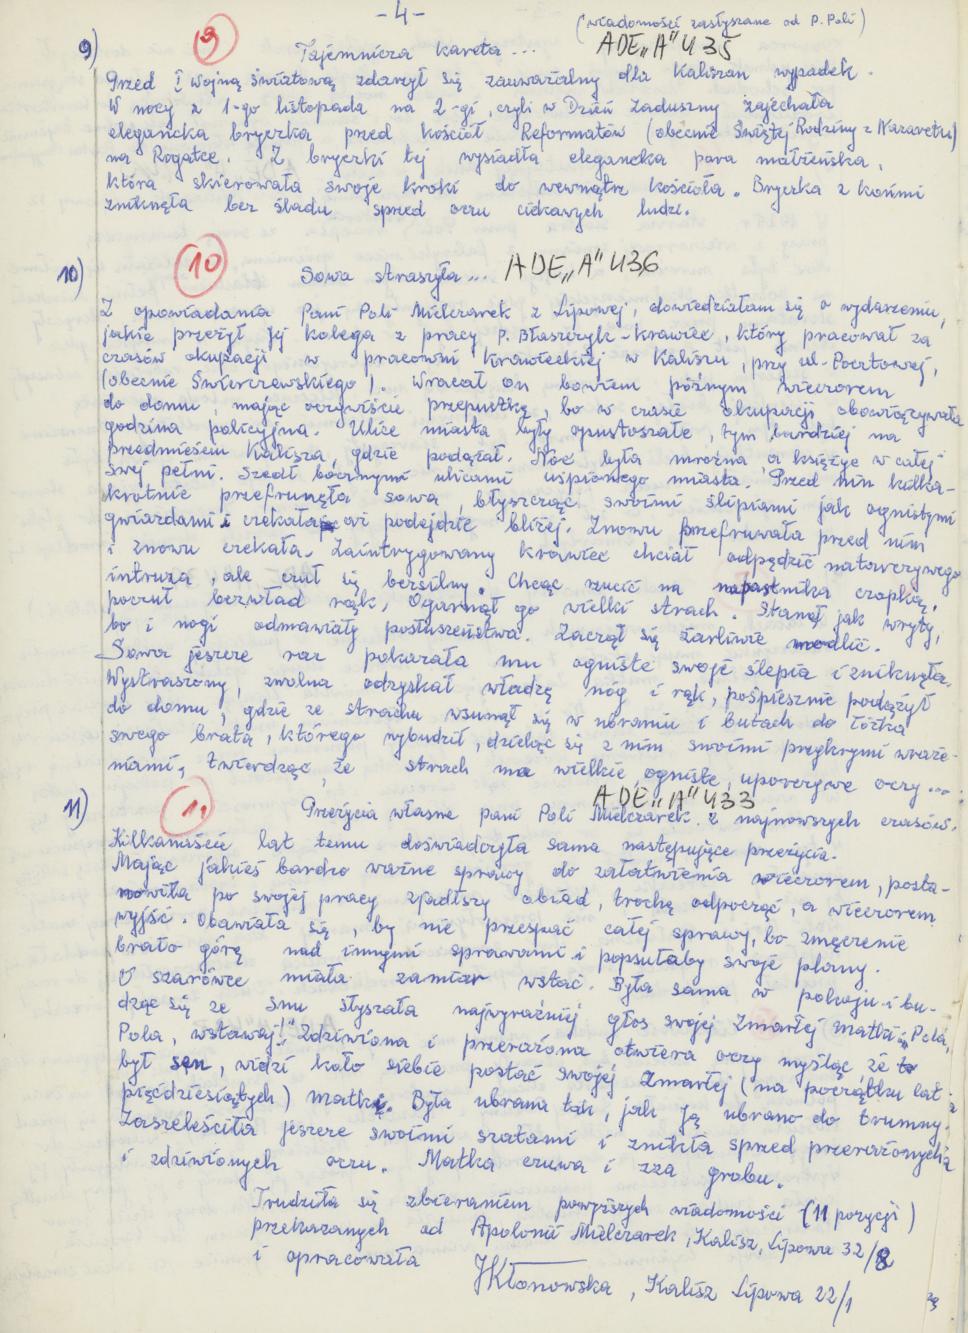 -4-
(wiadomości zasłyszane od P. Poli)
9) 9 Tajemnicza kareta... ADE„A"435
Przed I Wojną Światową zdarzył się zauważalny dla Kaliszan wypadek.
W nocy z 1-go listopada na 2-gi, czyli w Dzień Zaduszny zajechała
elegancka bryczka przed kościół Reformatów (obecnie Świętej Rodziny z Nazaretu)
na Rogatce. Z bryczki tej wysiadła elegancka para małżeńska,
która skierowała swoje kroki do wewnątrz kościoła. Bryczka z końmi
zniknęła bez śladu sprzed oczu ciekawych ludzi.
10) 10 Sowa straszyła... ADE„A"436
Z opowiadania Pani Poli Mielczarek z Lipowej, dowiedziałam się o wydarzeniu,
jakie przeżył Jej kolega z pracy P. Błaszczyk - Krawiec, który pracował za
czasów okupacji w pracowni krawieckiej w Kaliszu, przy ul. Pocztowej,
(obecnie Świerczewskiego). Wracał on bowiem późnym wieczorem
do domu, mając oczywiście przepustkę, bo w czasie okupacji obowiązywała
godzina policyjna. Ulice miasta były opustoszałe, tym bardziej na
przedmieściu Kalisza, gdzie podążał. Noc była mroźna, a księżyc w całej
swej pełni. Szedł bocznymi ulicami uśpionego miasta. Przed nim kilka-
krotnie przefrunęła sowa, błyszcząc swoimi ślipiami jak ognistymi
gwiazdami i czekała aż podejdzie bliżej. Znowu przefruwała przed nim
i znowu czekała. Zaintrygowany krawiec chciał odpędzić natowarzywego
intruza, ale czuł się bezsilny. Chcąc rzucić na napastnika czapką,
poczuł bezwład rąk, Ogarnął go wielki strach. Stanął jak wryty,
bo i nogi odmawiały posłuszeństwa. Zaczął się żarliwie modlić.
Sowa jeszcze raz pokazała mu ogniste swoje ślepia i zniknęła.
Wystraszony, zwolna odzyskał władzę nóg i rąk, pośpiesznie podążył
do domu, gdzie ze strachu wsunął się w ubraniu i butach do łóżka
swego brata, którego wybudził, dzieląc się z nim swoimi przykrymi wraże-
niami, twierdząc że strach ma wielkie, ogniste, uporczywe oczy...
11) 11 Przeżycia własne pani Poli Mielczarek z najnowszych czasów. ADE„A"433
Kilkanaście lat temu doświadczyła sama następujące przeżycia.
Mając jakieś bardzo ważne sprawy do załatwienia wieczorem, posta-
nowiła po swojej pracy zjadłszy obiad, trochę odpocząć, a wieczorem
wyjść. Obawiała się, by nie przespać całej sprawy, bo zmęczenie
brało górę nad innymi sprawami i popsułaby swoje plany.
O szarówce miała zamiar wstać. Była sama w pokoju i bu-
dząc się ze snu słyszała najwyraźniej głos swojej Zmarłej matki: „Pola,
Pola, wstawaj!" Zdziwiona i przerażona otwiera oczy myśląc, że to
był sen, widzi koło siebie postać swojej Zmarłej (na początku lat
pięćdziesiątych) matki. Była ubrana tak, jak ją ubrano do trumny.
Zaszeleściła jeszcze swoimi szatami i znikła sprzed przerażonych
i zdziwionych oczu. Matka czuwa i zza grobu.
Trudziła się zbieraniem powyższych wiadomości (11 pozycji)
przekazanych od Apolonii Mielczarek, Kalisz, Lipowa 32/8
i opracowała
JKłonowska, Kalisz Lipowa 22/1